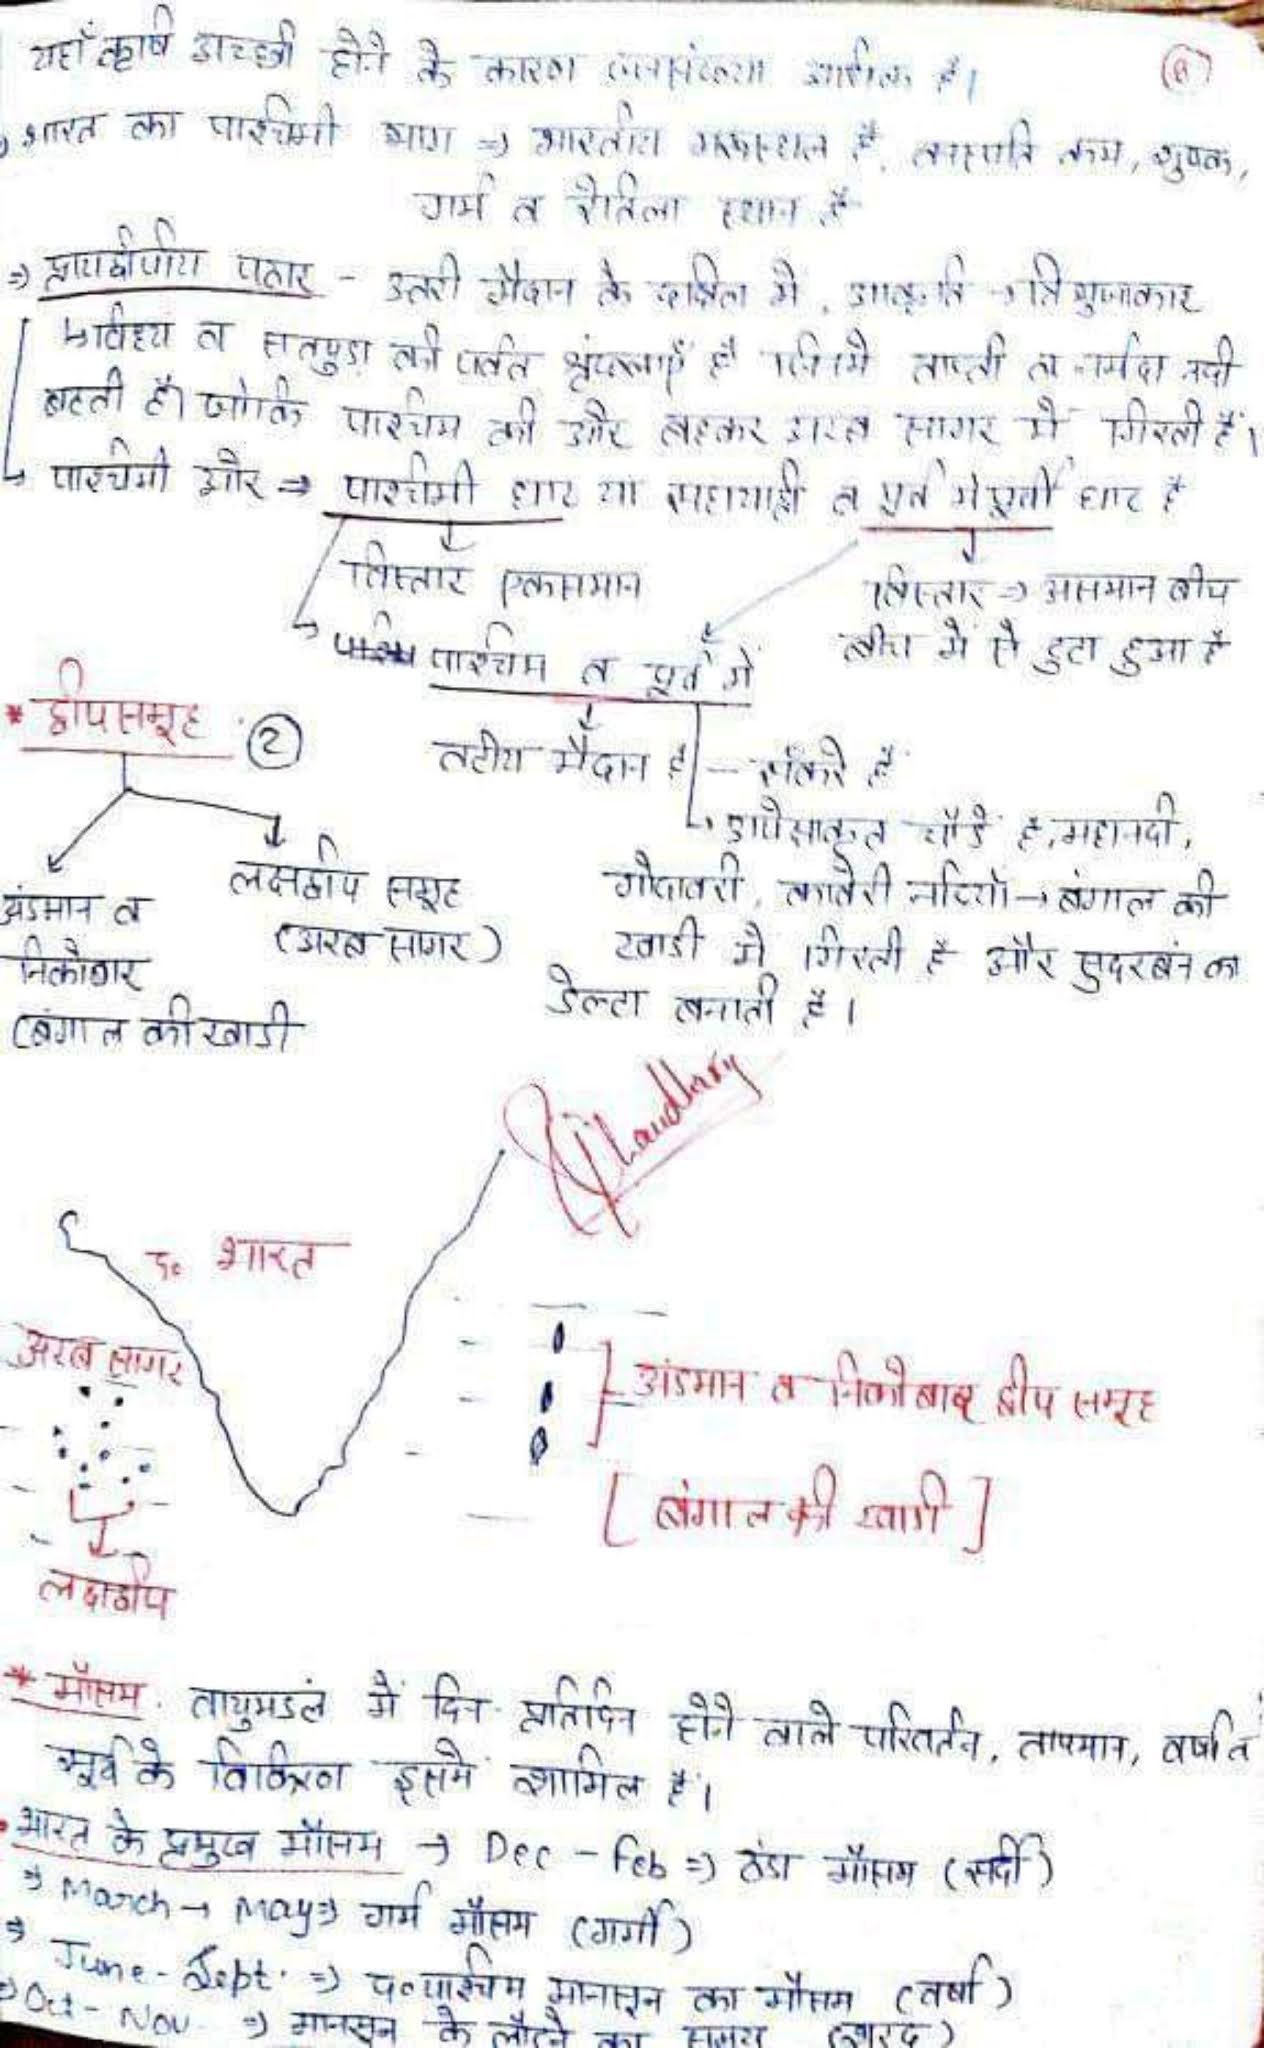 यहाँ कृषि अच्छी होने के कारण जनसंख्या अधिक है।
(8)
भारत का पश्चिमी भाग ⇒ भारतीय मरूस्थल है, वनस्पति कम, शुष्क,
गर्म व रेतिला स्थान है
⇒ प्रायद्वीपीय पठार - उत्तरी मैदान के दक्षिण में, आकृति → त्रिभुजाकार
↳ विंध्य व सतपुड़ा की पर्वत श्रृंखलाएँ है जिनमें ताप्ती व नर्मदा नदी
बहती है। जोकि पश्चिम की और बहकर अरब सागर में गिरती है।
↳ पश्चिमी और ⇒ पश्चिमी घाट या सहयाद्री व पूर्व में पूर्वी घाट है
विस्तार एकसमान
विस्तार → असमान बीच
बीच में से टुटा हुआ है
पश्चिम व पूर्व में
* द्वीपसमूह (2)
तटीय मैदान है
— संकरे है
↳ अपेक्षाकृत चौडे है, महानदी,
गोदावरी, कावेरी नदियाँ → बंगाल की
खाडी में गिरती है और सुदरबन का
डेल्टा बनाती है।
लक्षद्वीप समूह
(अरब सागर)
अंडमान व
निकोबार
(बंगाल की खाडी
Chaudhary
द० भारत
अरब सागर
अंडमान व निकोबार द्वीप समूह
[बंगाल की खाडी]
लक्षद्वीप
* मौसम. वायुमडंल में दिन-प्रतिदिन होने वाले परिवर्तन, तापमान, वर्षा व
सूर्य के विकिरण इसमें शामिल है।
• भारत के प्रमुख मौसम → Dec - Feb ⇒ ठंडा मौसम (सर्दी)
⇒ March → May ⇒ गर्म मौसम (गर्मी)
⇒ June - Sept. ⇒ द०पश्चिम मानसून का मौसम (वर्षा)
⇒ Oct - Nov ⇒ मानसून के लौटने का समय (शरद)